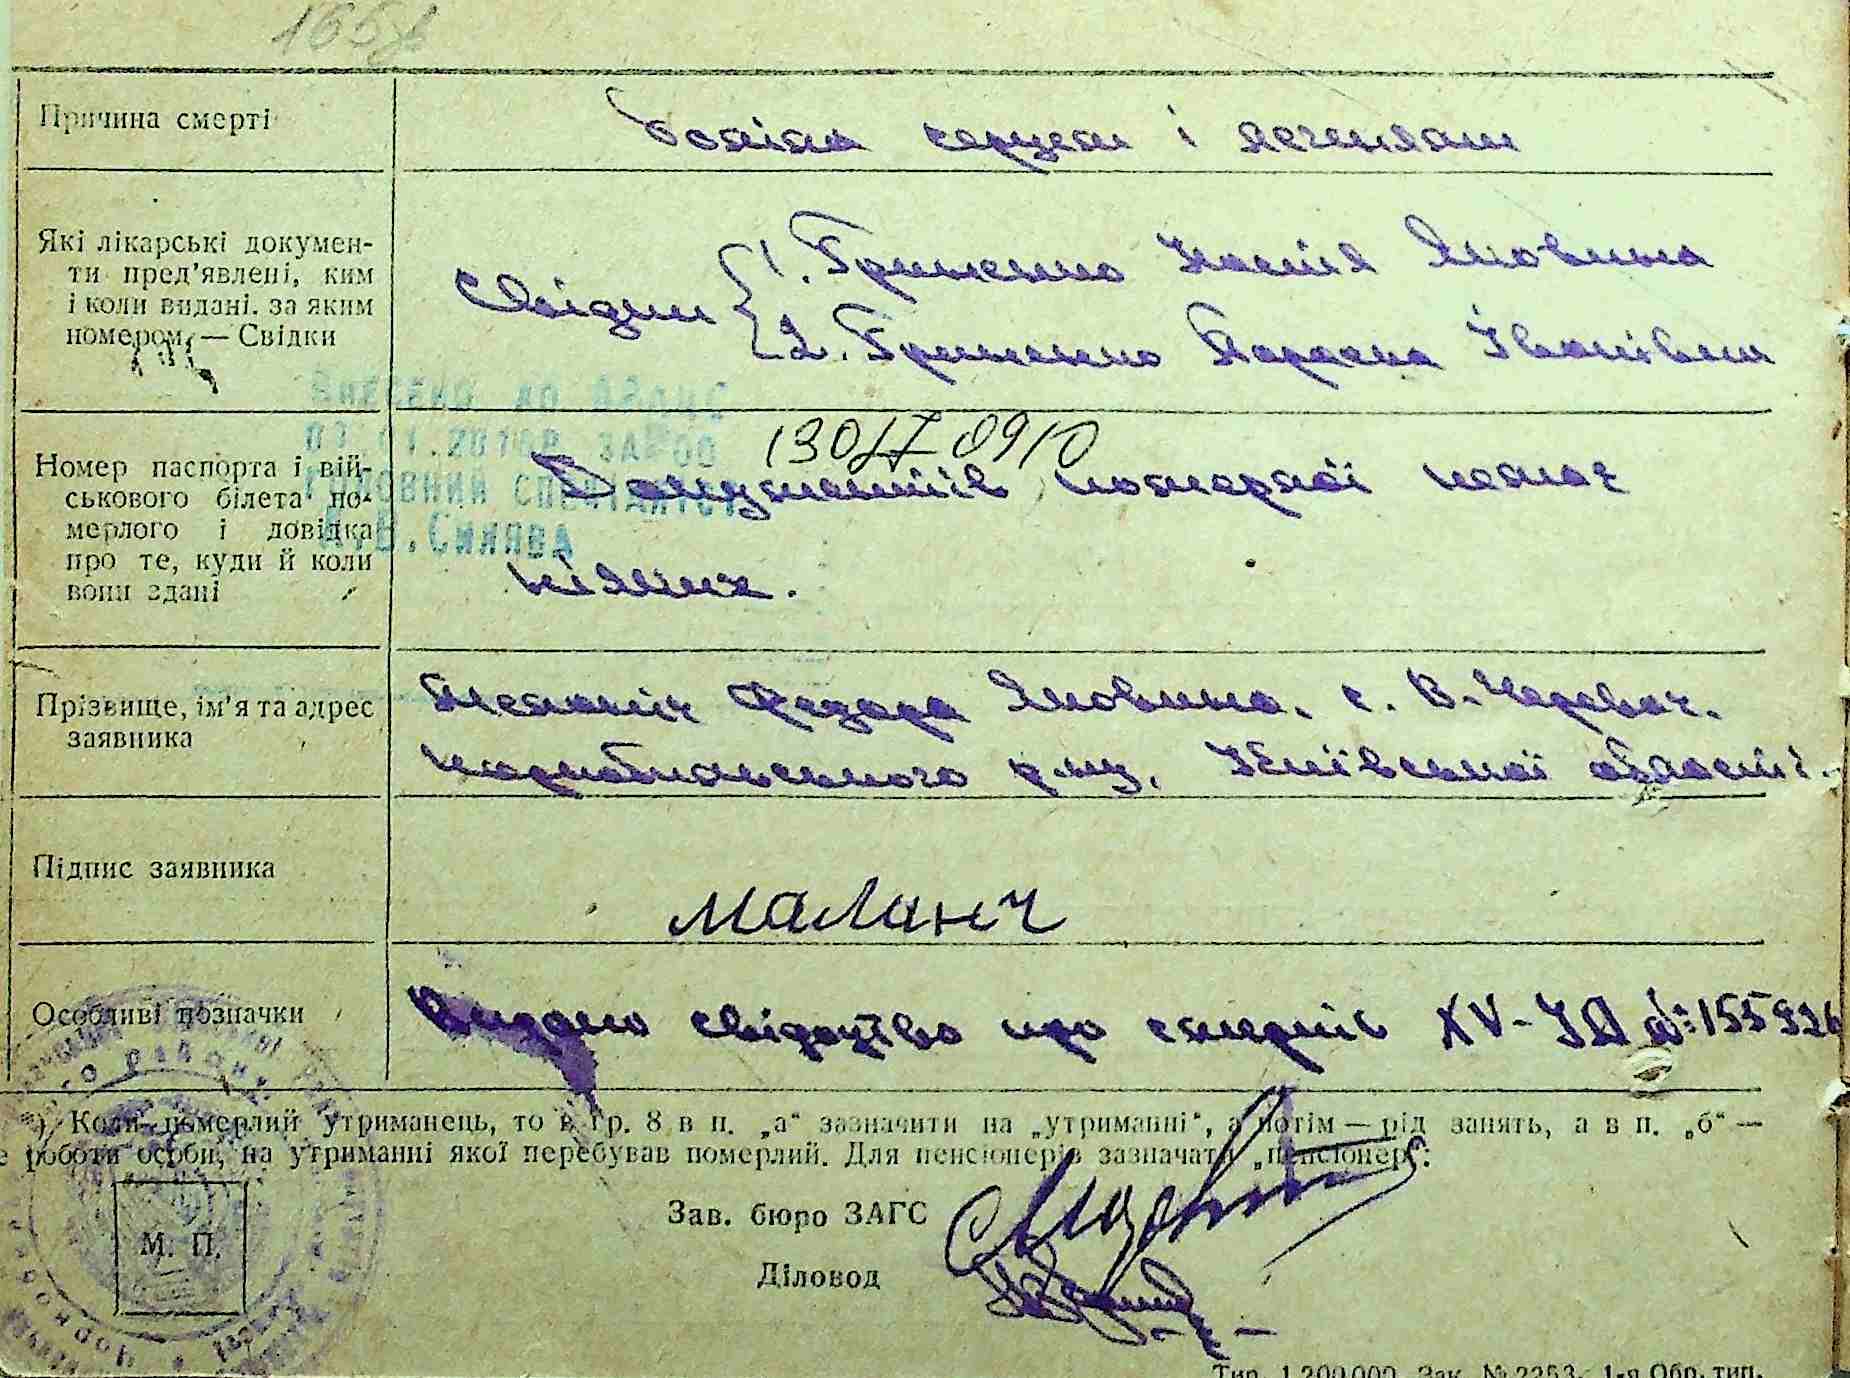 166
Причина смерті
боліла серцем і легенями
Які лікарські докумен-
ти пред'явлені, ким
і коли видані. за яким
номером, — Свідки
Свідки
1. Гриценко Настія Яковлівна
2. Гриценко Параска Іванівна
Внесено до
Головний спеціаліст
Номер паспорта і вій-
ськового білета по-
мерлого і довідка
про те, куди й коли
вони здані
Документів померлої немає
ніяких.
Прізвище, ім'я та адрес
заявника
Федора Яковлівна. с. В-Черевач.
Чорнобильського р-ну, Київської області.
Підпис заявника
Маланіч
Особливі позначки
Видано свідоцтво про смерть XV-УД №
) Коли померлий утриманець, то в гр. 8 в п. „а“ зазначити на „утриманні“, а потім — рід занять, а в п. „б“ —
роботи особи, на утриманні якої перебував померлий. Для пенсіонерів зазначати „пенсіонер“.
Зав. бюро ЗАГС
М. П.
Діловод
Тир. 1.200.000. Зак. № 2253. 1-я Обр. тип.